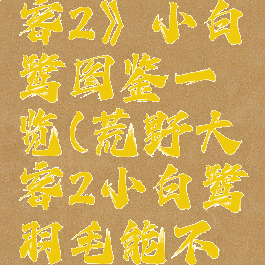 客2》小白
鹭图鉴一
览(荒野大
客2小白鹭
羽毛能不